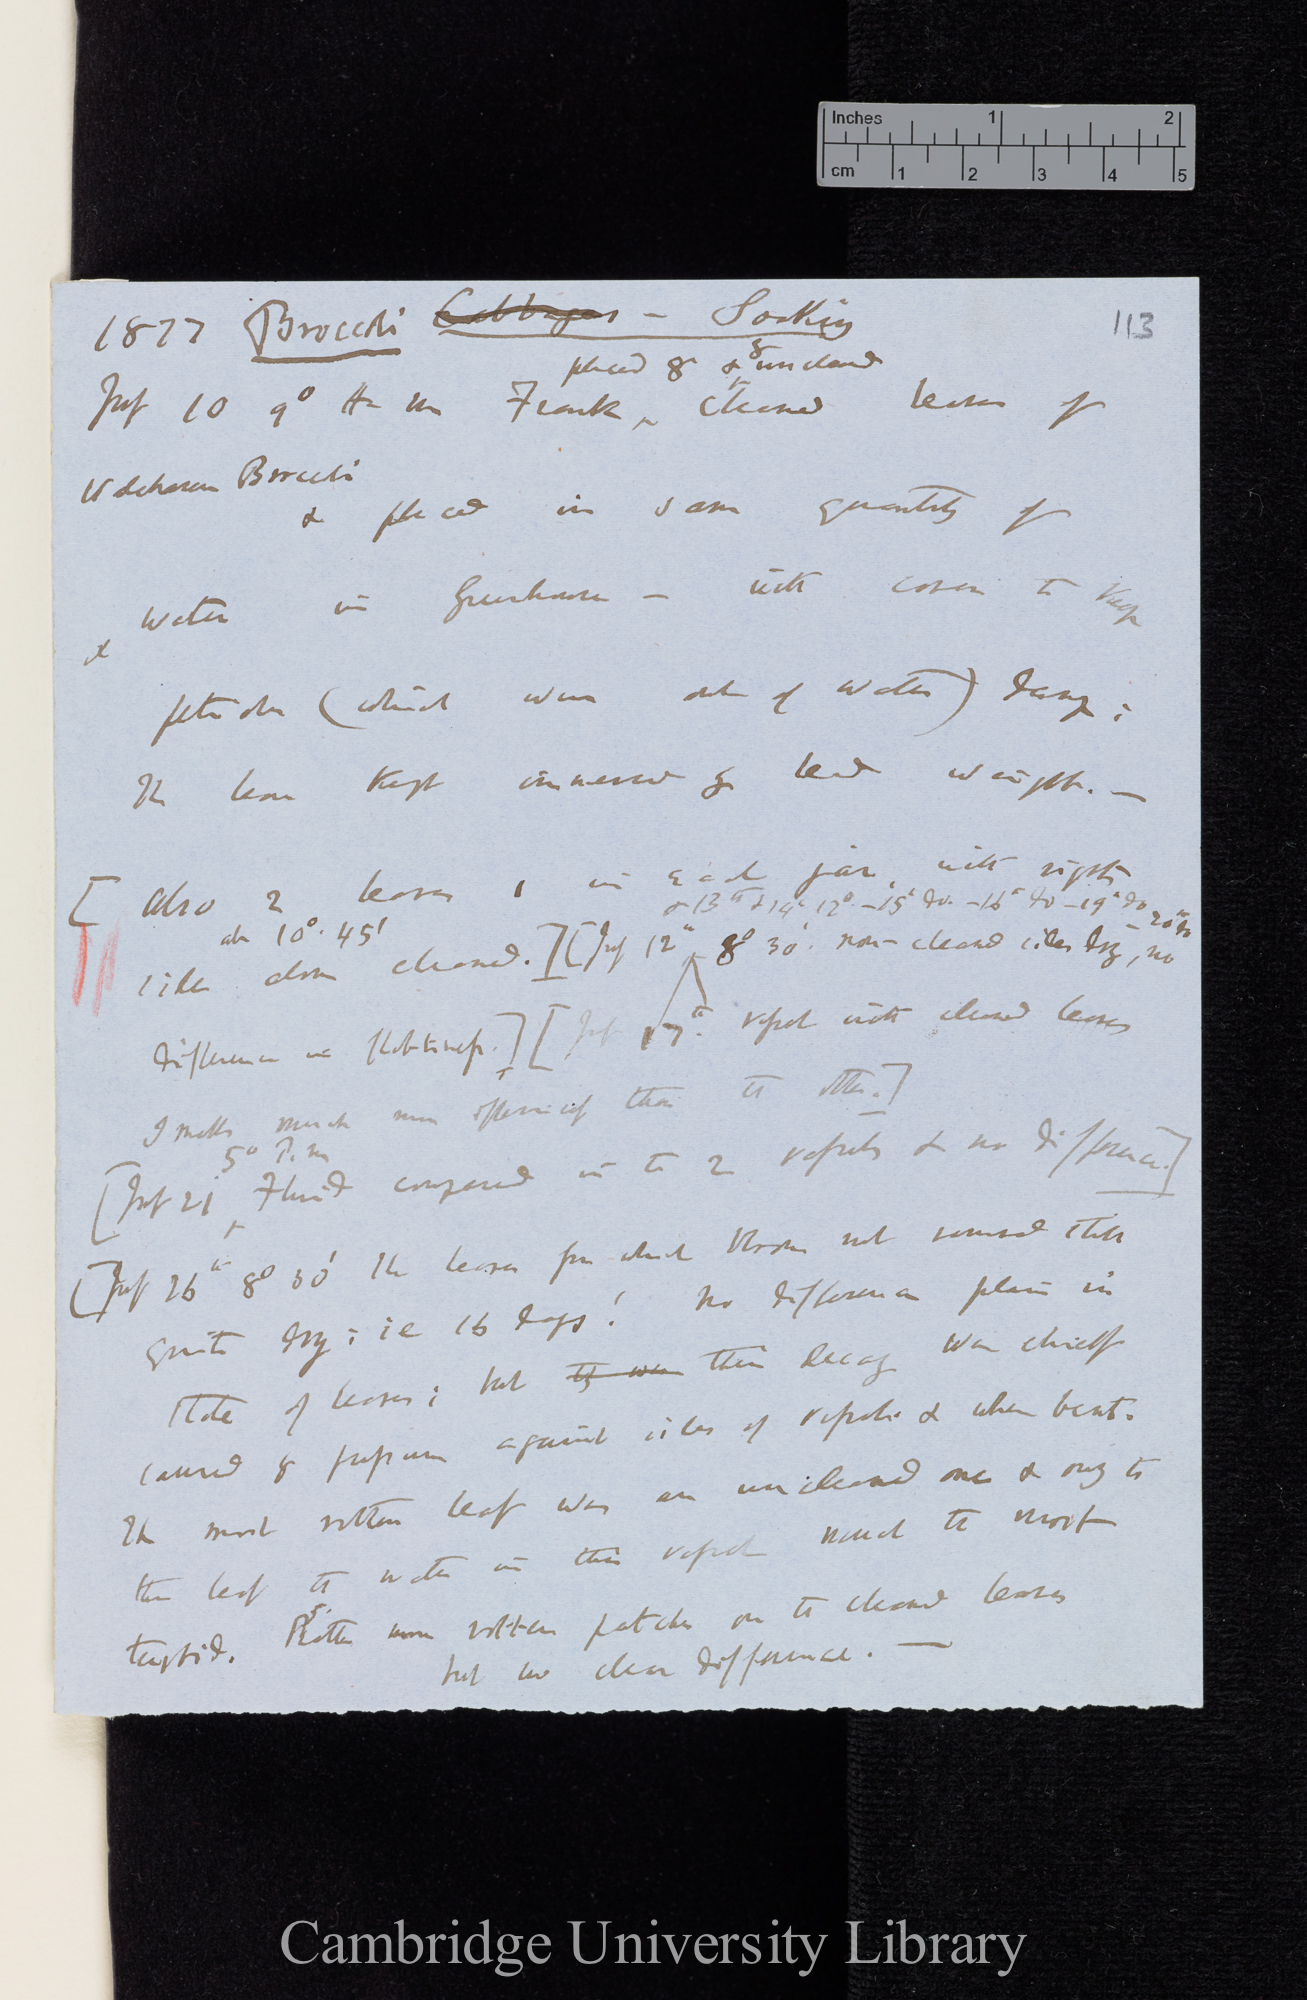 Inches 1 2
cm 1 2 3 4 5
113
1877 Broccoli Cabbages — Soaking
placed 8 & 8 uncleaned
July 10 9° Frank cleaned leaves of
Broccoli
& placed in same quantity of
water in Greenhouse — with cover to keep
&
petioles (which were out of water) damp;
The leaves kept immersed by lead weights. —
[Also 2 leaves, 1 in each jar, with right
& 13th & 14th 12° — 15th do. — 16th do — 19th do 20th do
at 10°. 45'
side alone cleaned.] [July 12th 8° 30' non-cleaned sides dry, no
difference in putridness.] [July 17th. vessel with cleaned leaves
smells much more offensively than the other.]
5° P.m
[July 21 Fluid compared in the 2 vessels & no difference.]
[July 26th 8° 30' The leaves from which bloom not removed still
quite dry; ie 16 days! No difference plain in
state of leaves; but their decay was chiefly
caused by pressure against sides of vessels & when bent.
The most rotten leaf was an uncleaned one & owing to
this leaf the water in this vessel smelt the most
turbid. Rather more rotten patches on the cleaned leaves
but no clear difference. —
Cambridge University Library